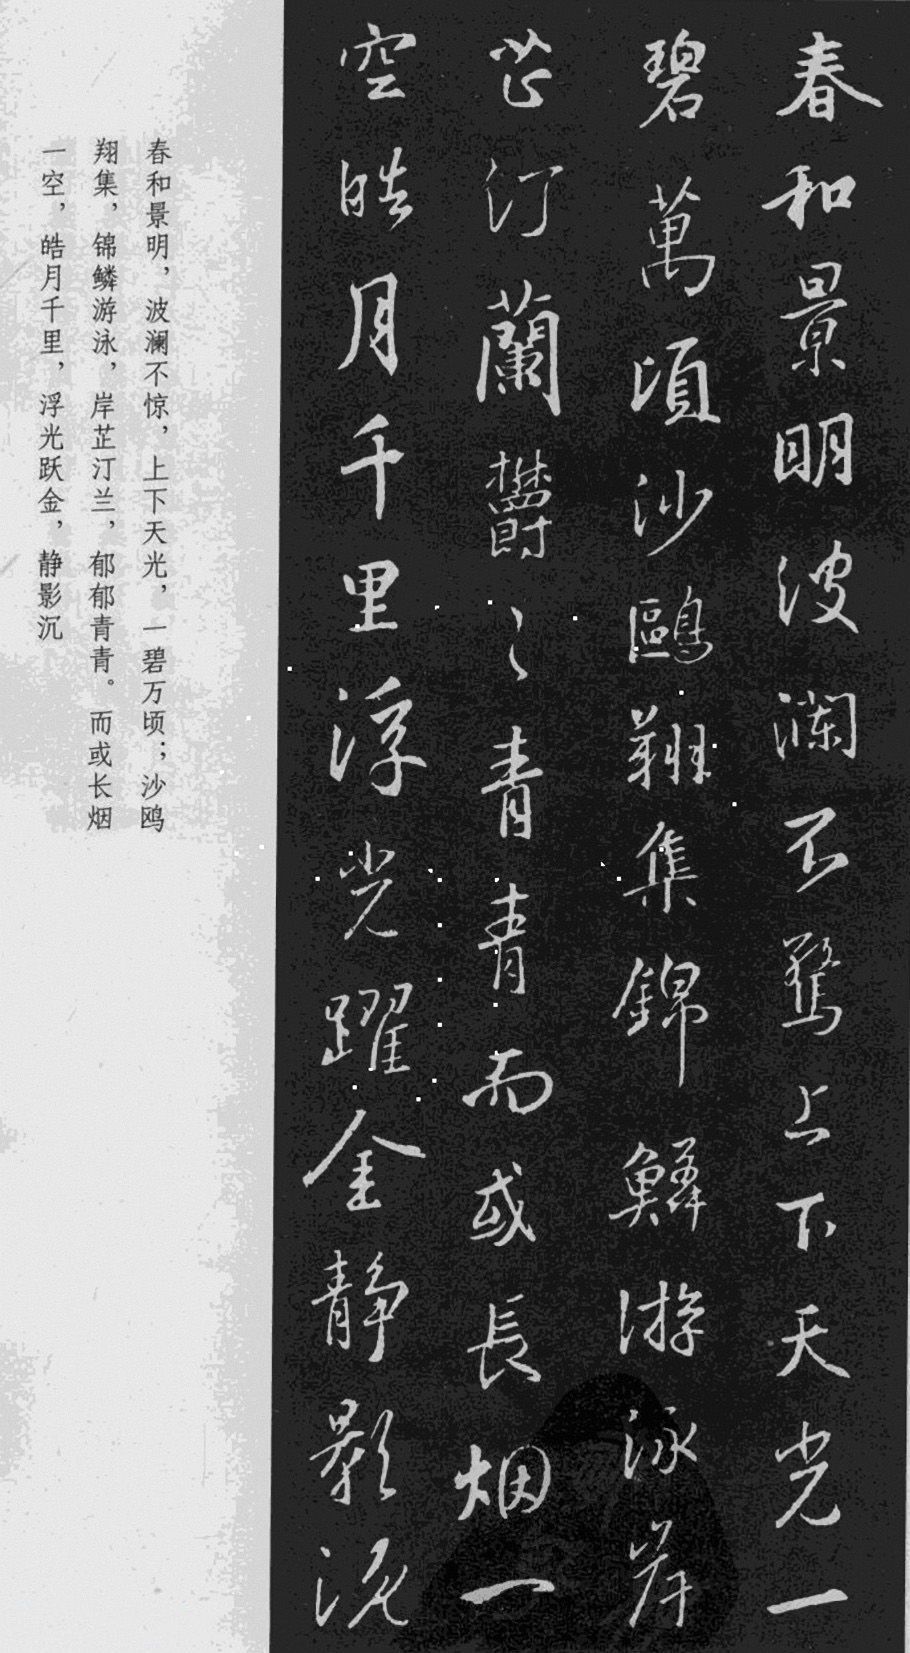 春和景明波瀾不驚上下天光一
碧萬頃沙鷗翔集錦鱗游泳岸
芷汀蘭欝〻青青而或長烟一
空皓月千里浮光躍金静影沉
春和景明，波澜不惊，上下天光，一碧万顷；沙鸥
翔集，锦鳞游泳，岸芷汀兰，郁郁青青。而或长烟
一空，皓月千里，浮光跃金，静影沉